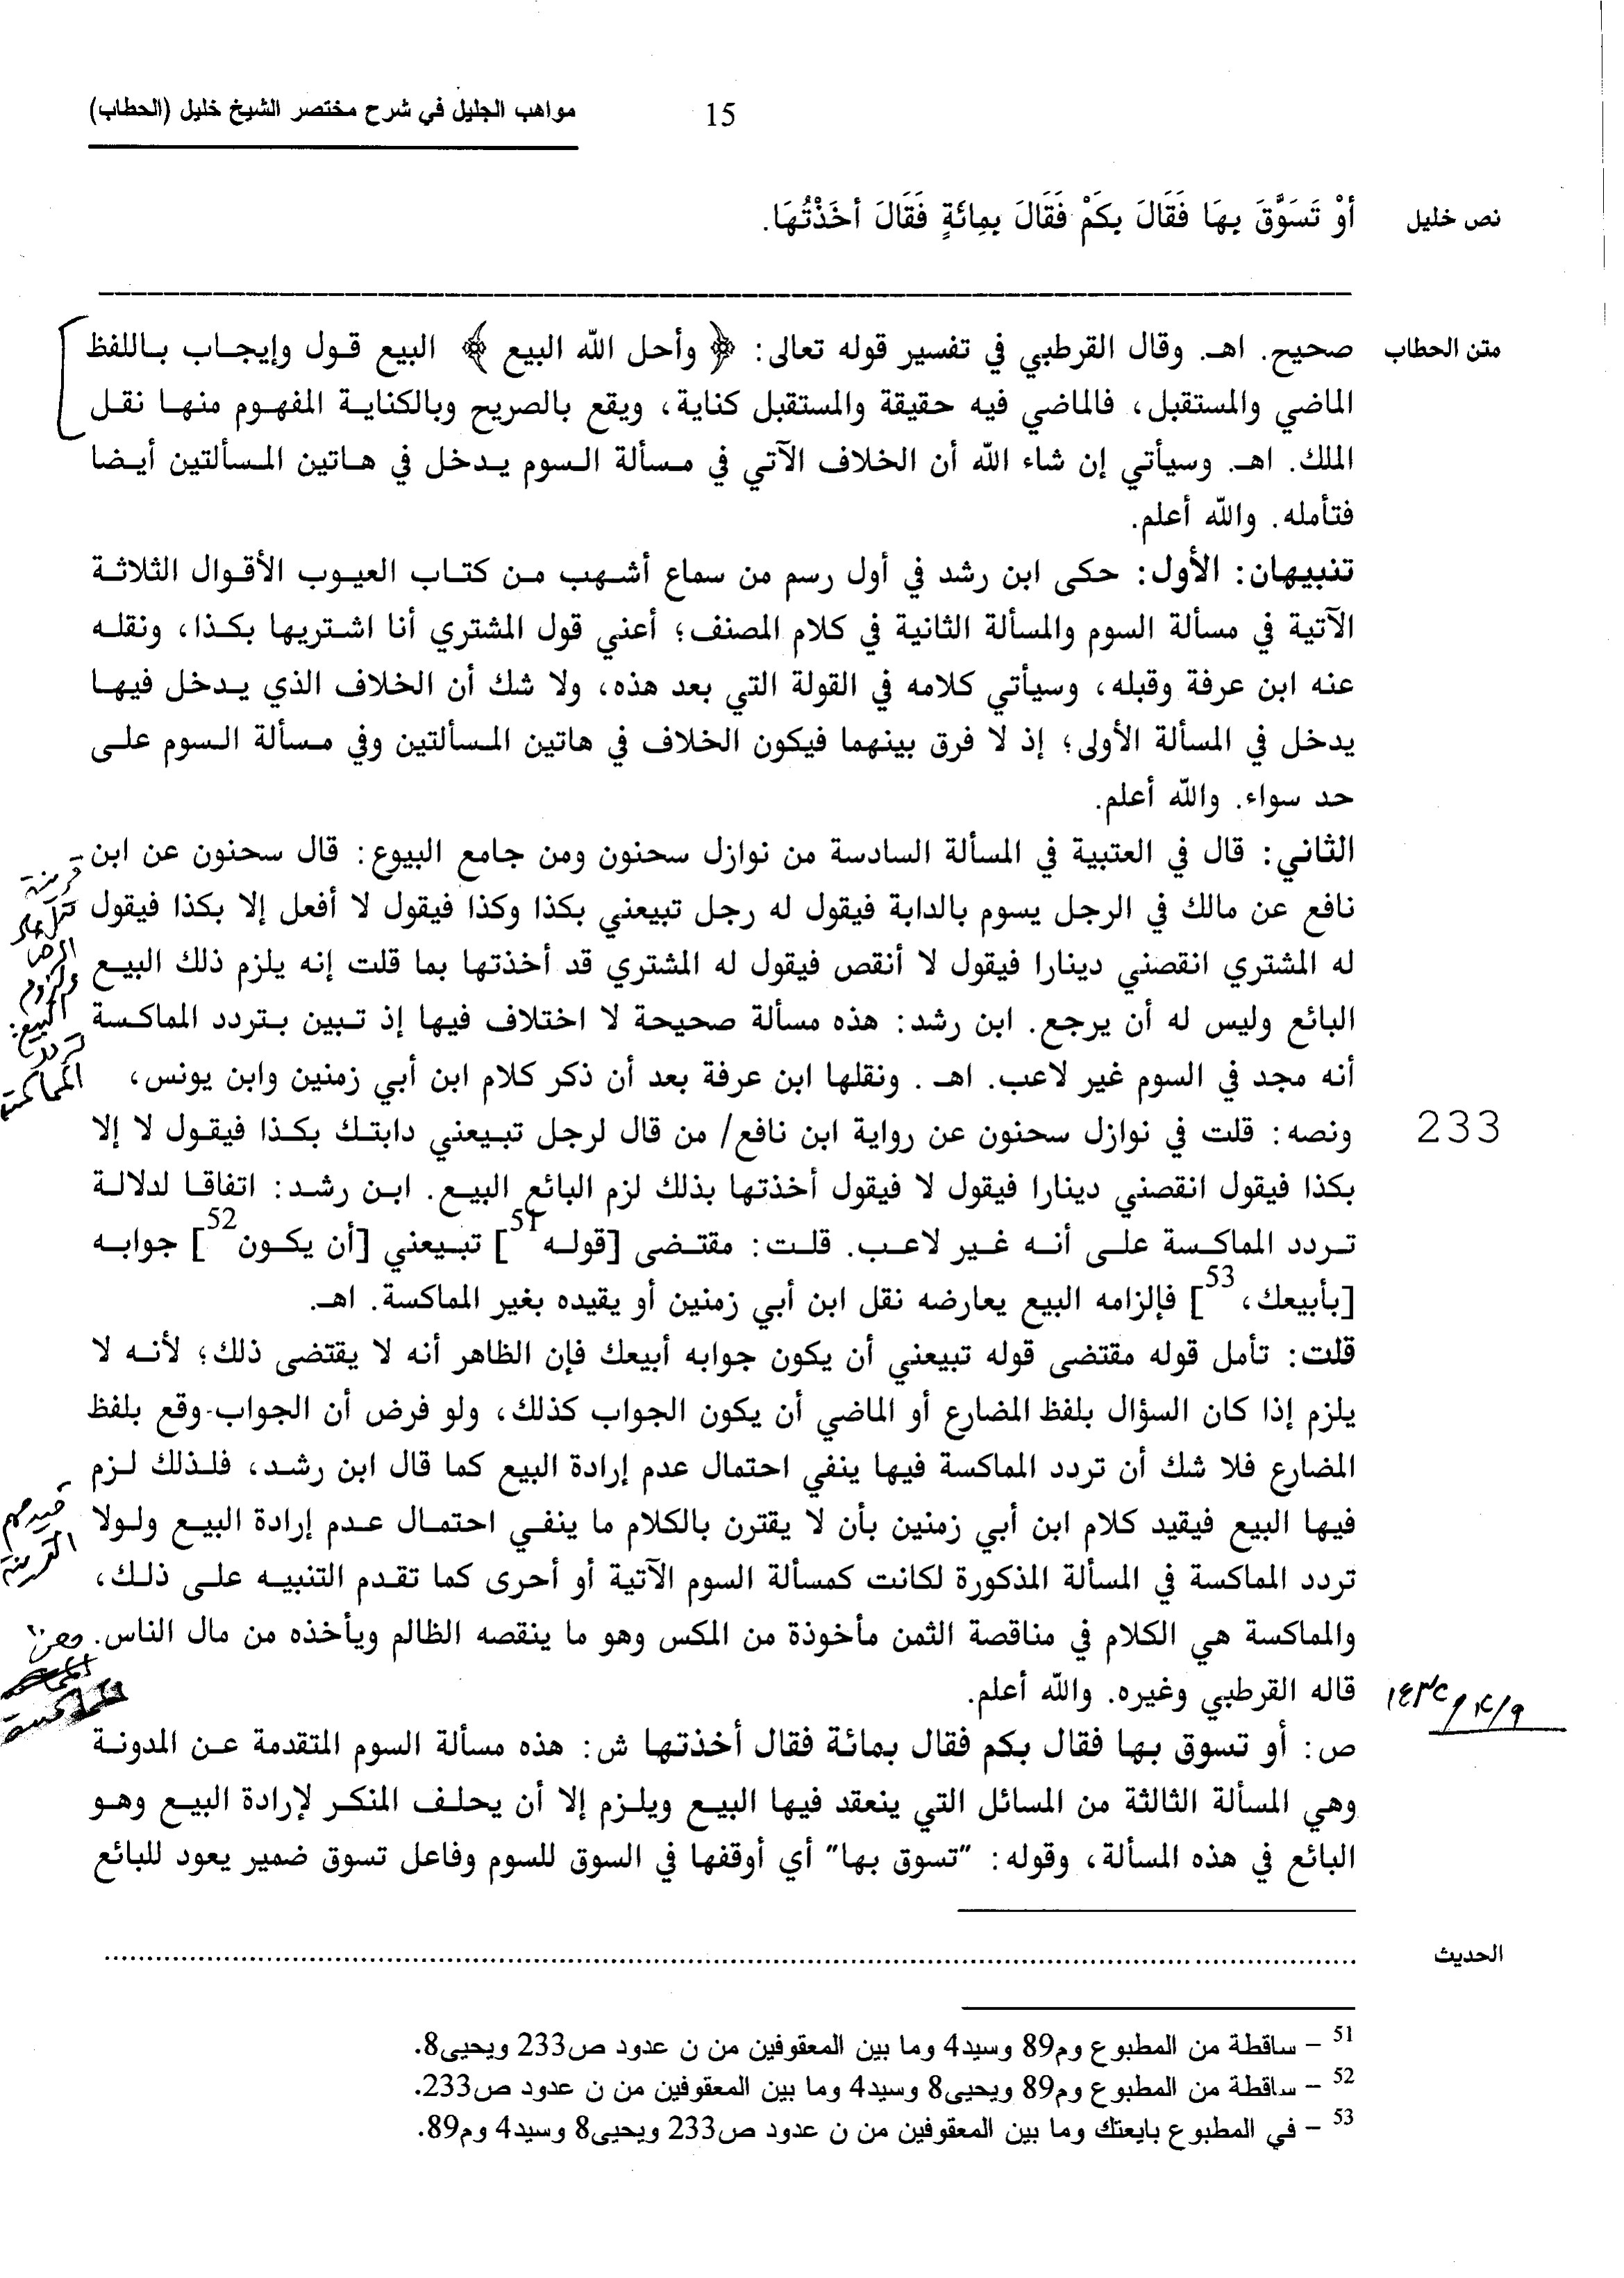 مواهب الجليل في شرح مختصر الشيخ خليل (الحطاب)
15
نص خليل
أوْ تَسَوَّقَ بِهَا فَقَالَ بِكَمْ فَقَالَ بِمِائَةٍ فَقَالَ أخَذْتُهَا.
متن الحطاب
صحيح. اهـ. وقال القرطبي في تفسير قوله تعالى: ﴿ وأحل الله البيع ﴾ البيع قول وإيجاب باللفظ
الماضي والمستقبل، فالماضي فيه حقيقة والمستقبل كناية، ويقع بالصريح وبالكناية المفهوم منها نقل
الملك. اهـ. وسيأتي إن شاء الله أن الخلاف الآتي في مسألة السوم يدخل في هاتين المسألتين أيضا
فتأمله. والله أعلم.
تنبيهان: الأول: حكى ابن رشد في أول رسم من سماع أشهب من كتاب العيوب الأقوال الثلاثة
الآتية في مسألة السوم والمسألة الثانية في كلام المصنف؛ أعني قول المشتري أنا اشتريها بكذا، ونقله
عنه ابن عرفة وقبله، وسيأتي كلامه في القولة التي بعد هذه، ولا شك أن الخلاف الذي يدخل فيها
يدخل في المسألة الأولى؛ إذ لا فرق بينهما فيكون الخلاف في هاتين المسألتين وفي مسألة السوم على
حد سواء. والله أعلم.
الثاني: قال في العتبية في المسألة السادسة من نوازل سحنون ومن جامع البيوع: قال سحنون عن ابن
نافع عن مالك في الرجل يسوم بالدابة فيقول له رجل تبيعني بكذا وكذا فيقول لا أفعل إلا بكذا فيقول
له المشتري انقصني دينارا فيقول لا أنقص فيقول له المشتري قد أخذتها بما قلت إنه يلزم ذلك البيع
البائع وليس له أن يرجع. ابن رشد: هذه مسألة صحيحة لا اختلاف فيها إذ تبين بتردد المماكسة
أنه مجد في السوم غير لاعب. اهـ. ونقلها ابن عرفة بعد أن ذكر كلام ابن أبي زمنين وابن يونس،
قرينة
الرضا
ولزوم
البيع:
تردد
المماكسة
233
ونصه: قلت في نوازل سحنون عن رواية ابن نافع/ من قال لرجل تبيعني دابتك بكذا فيقول لا إلا
بكذا فيقول انقصني دينارا فيقول لا فيقول أخذتها بذلك لزم البائع البيع. ابن رشد: اتفاقا لدلالة
تردد المماكسة على أنه غير لاعب. قلت: مقتضى [قوله51] تبيعني [أن يكون52] جوابه
[بأبيعك،53] فإلزامه البيع يعارضه نقل ابن أبي زمنين أو يقيده بغير المماكسة. اهـ.
قلت: تأمل قوله مقتضى قوله تبيعني أن يكون جوابه أبيعك فإن الظاهر أنه لا يقتضى ذلك؛ لأنه لا
يلزم إذا كان السؤال بلفظ المضارع أو الماضي أن يكون الجواب كذلك، ولو فرض أن الجواب وقع بلفظ
المضارع فلا شك أن تردد المماكسة فيها ينفي احتمال عدم إرادة البيع كما قال ابن رشد، فلذلك لزم
فيها البيع فيقيد كلام ابن أبي زمنين بأن لا يقترن بالكلام ما ينفي احتمال عدم إرادة البيع ولولا
تردد المماكسة في المسألة المذكورة لكانت كمسألة السوم الآتية أو أحرى كما تقدم التنبيه على ذلك،
والمماكسة هي الكلام في مناقصة الثمن مأخوذة من المكس وهو ما ينقصه الظالم ويأخذه من مال الناس.
القرينة
معنى
المماكسة
قاله القرطبي وغيره. والله أعلم.
ص: أو تسوق بها فقال بكم فقال بمائة فقال أخذتها ش: هذه مسألة السوم المتقدمة عن المدونة
وهي المسألة الثالثة من المسائل التي ينعقد فيها البيع ويلزم إلا أن يحلف المنكر لإرادة البيع وهو
البائع في هذه المسألة، وقوله: "تسوق بها" أي أوقفها في السوق للسوم وفاعل تسوق ضمير يعود للبائع
الحديث
51 – ساقطة من المطبوع وم89 وسيد4 وما بين المعقوفين من ن عدود ص233 ويحيى8.
52 – ساقطة من المطبوع وم89 ويحيى8 وسيد4 وما بين المعقوفين من ن عدود ص233.
53 – في المطبوع بايعتك وما بين المعقوفين من ن عدود ص233 ويحيى8 وسيد4 وم89.